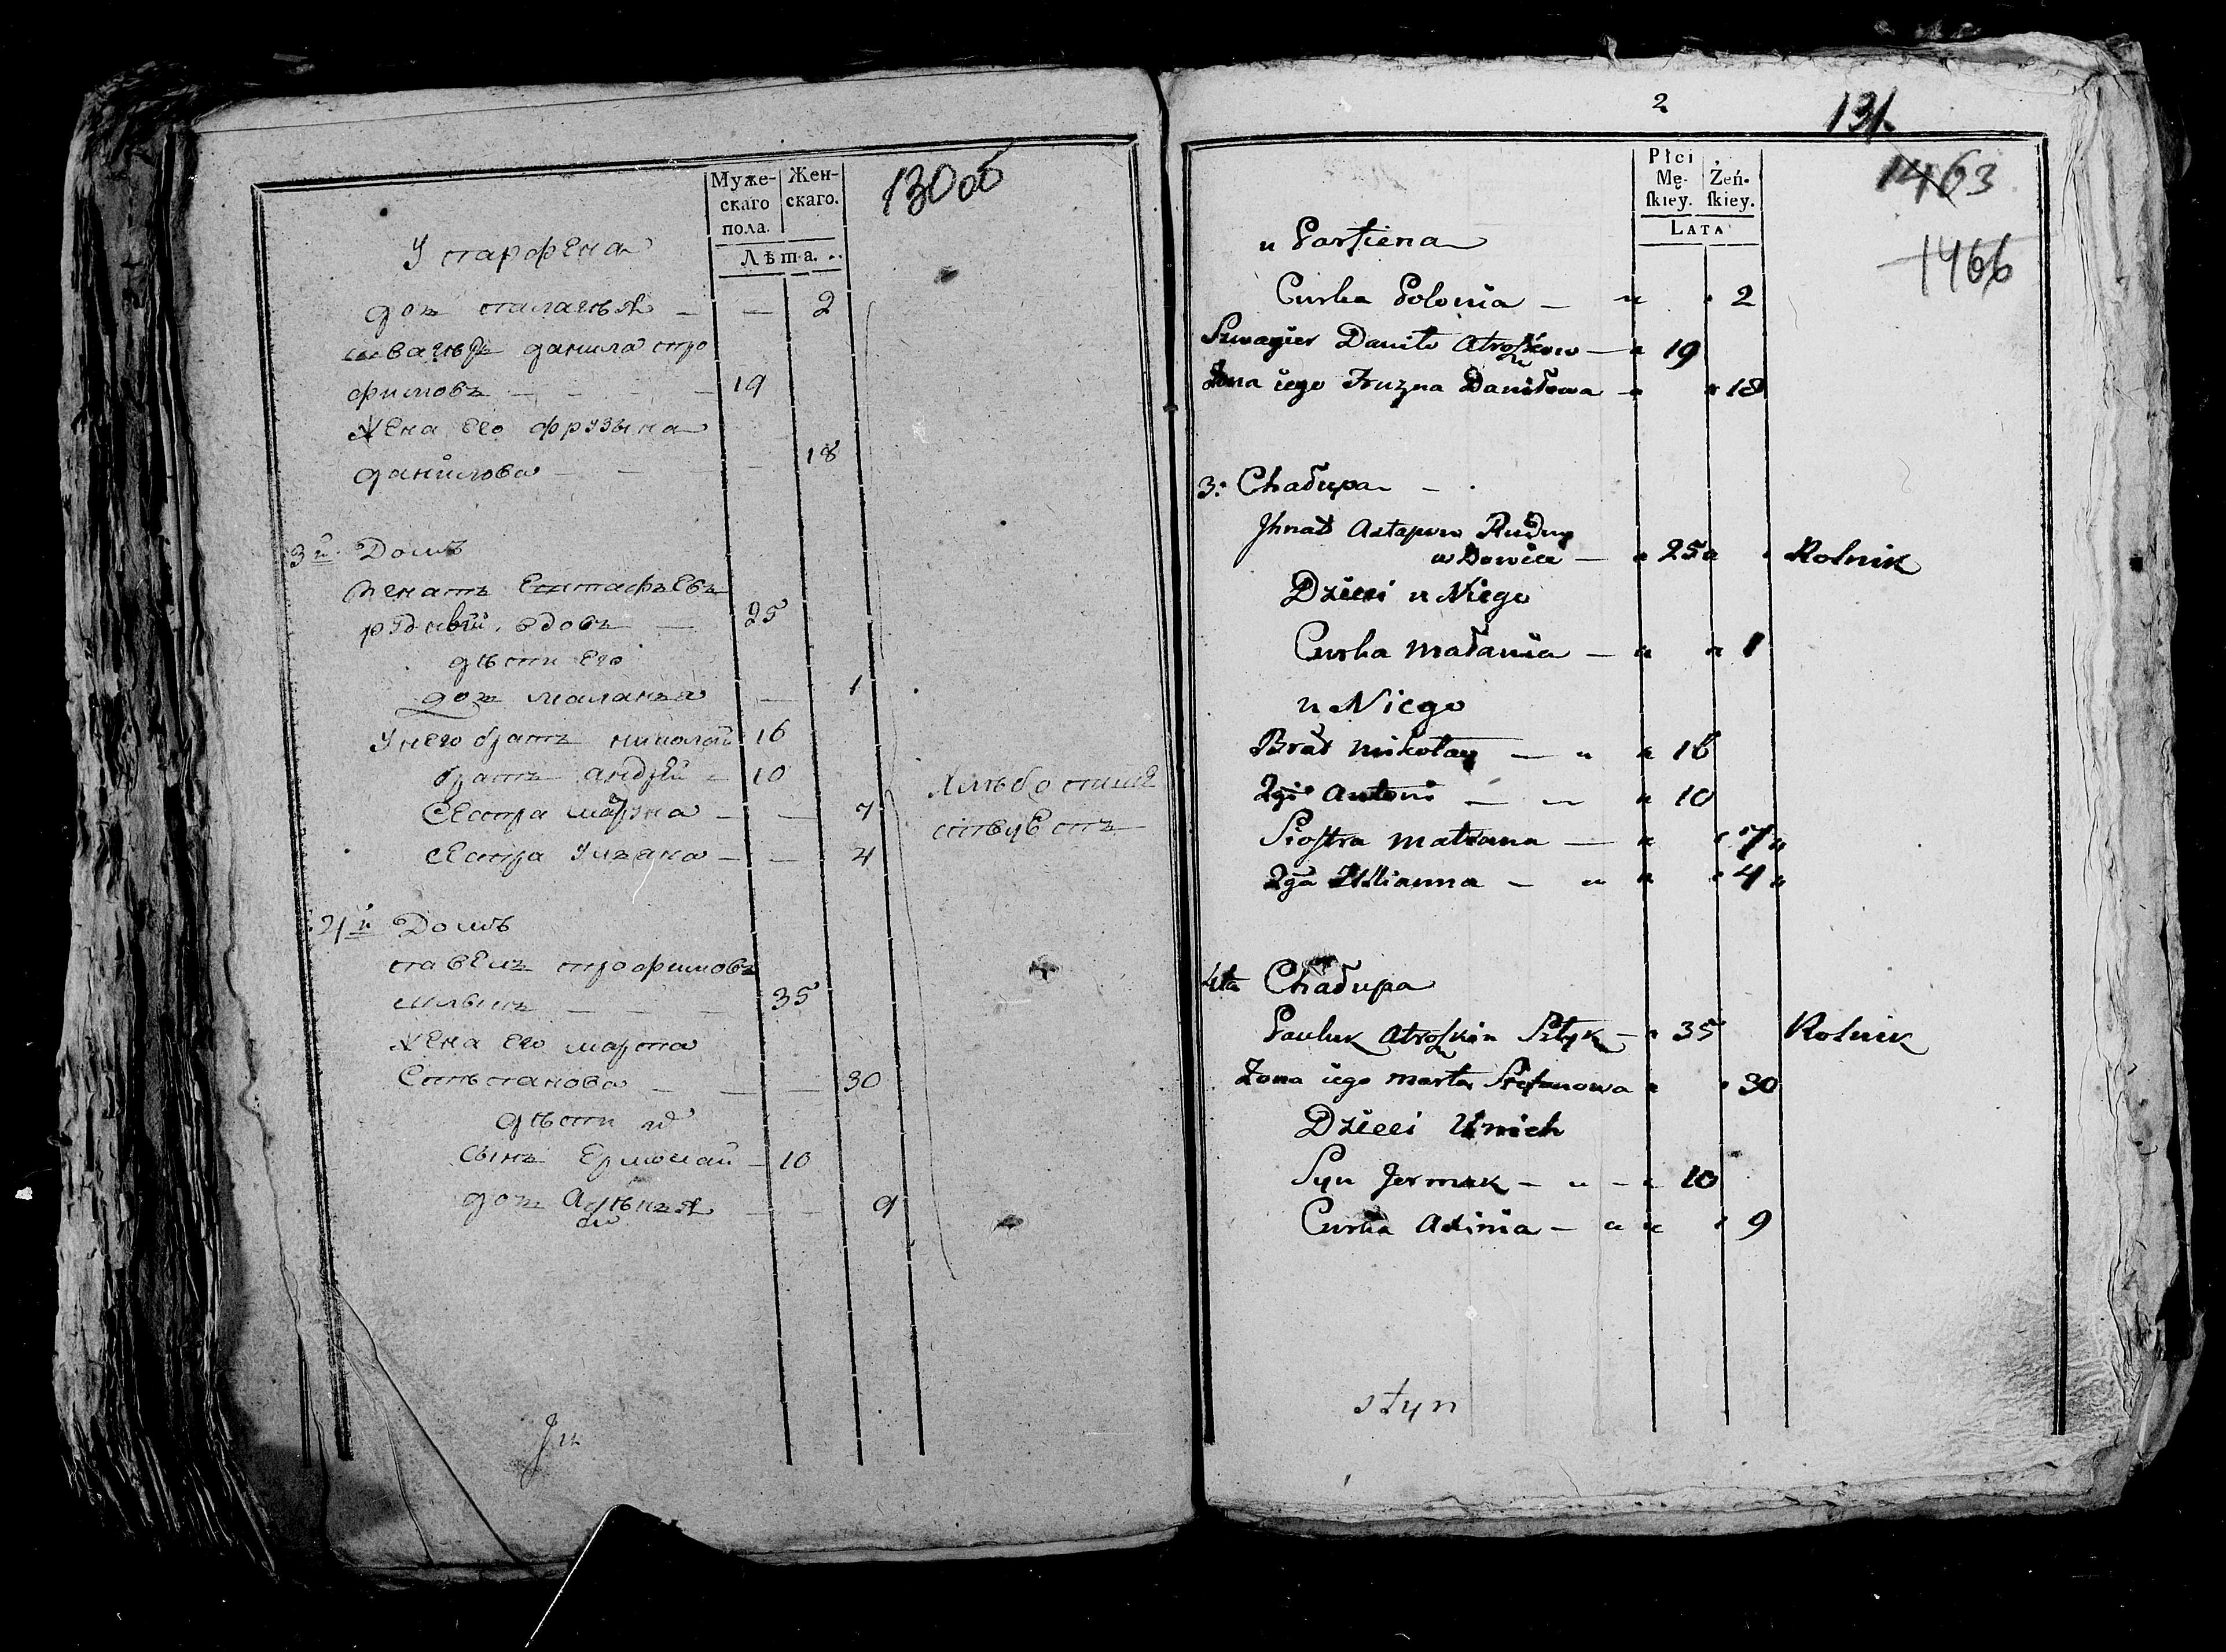 130 об
Муже-
скаго
пола.
Жен-
скаго.
Лѣта.
У парфена
доч палагѣя — — 2
швагеръ данила тро
фимовъ — 19
жена его фрузына
данилова — — 18
3й Домъ
игнатъ Естафьевъ
рудный вдовъ — 25
дѣти его
доч маланья — 1
У него братъ николай 16
братъ андрей — 10
сестра марына — — 7
сестра ульяна — — 4
хлебопаше
ствуетъ
4й Домъ
павелъ трофимовъ
35
жена его марта
Степанова — — 30
дѣти их
сынъ Ермолай — 10
доч — — 9
2
131
1463
1466
Płci
Mę-
ſkiey.
Żeń-
ſkiey.
LATA
u Parfiena
Curka Polonia — " " 2
Szwagier Daniło Atroszkow — " 19
Żona iego Fruzyna Daniłowa " " 18
3: Chałupa —
Ihnat Astapow Rudny
wdowiec — " 25 " " Rolnik
Dzieci u Niego
Curka małania — " " 1
u Niego
Brat mikołay — " " 16
2gi Antoni — — " 10
Siostra matrona — " " 7 "
2ga Ullianna — " " " 4 "
4ta Chałupa
Pauluk Atroszkin Słyk — " 35 Rolnik
Żona iego marta Stefanowa " " 30
Dzieci U nich
Syn Jermak — " — " 10
Curka Axinia — " " " 9
styn